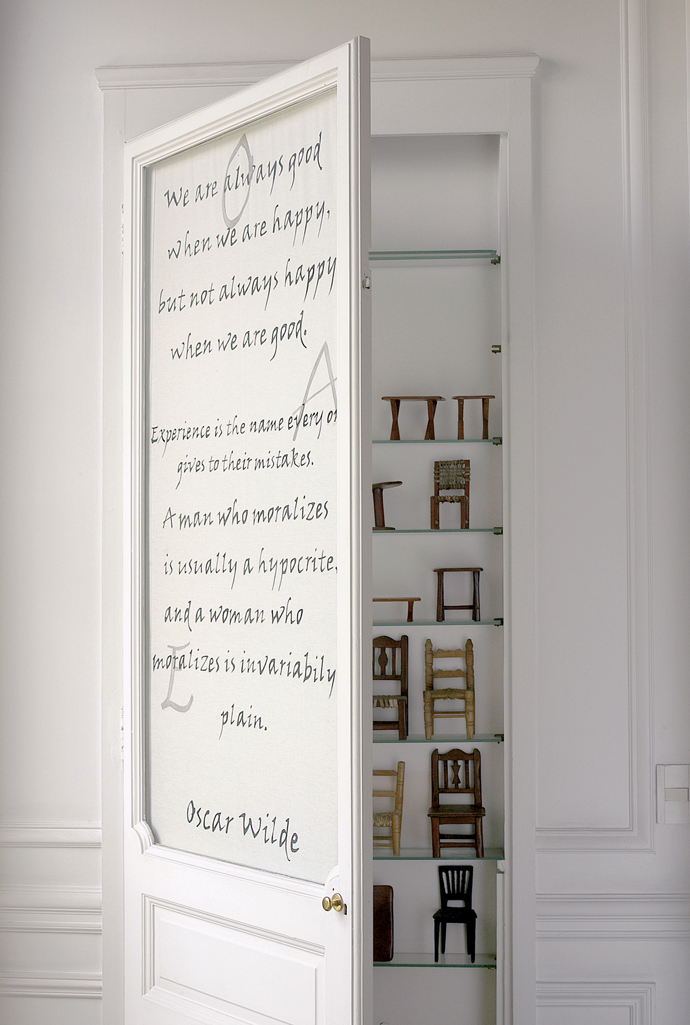 We are always good
when we are happy,
but not always happy
when we are good.
Experience is the name every on
gives to their mistakes.
A man who moralizes
is usually a hypocrite,
and a woman who
moralizes is invariabily
plain.
Oscar Wilde
O
A
E